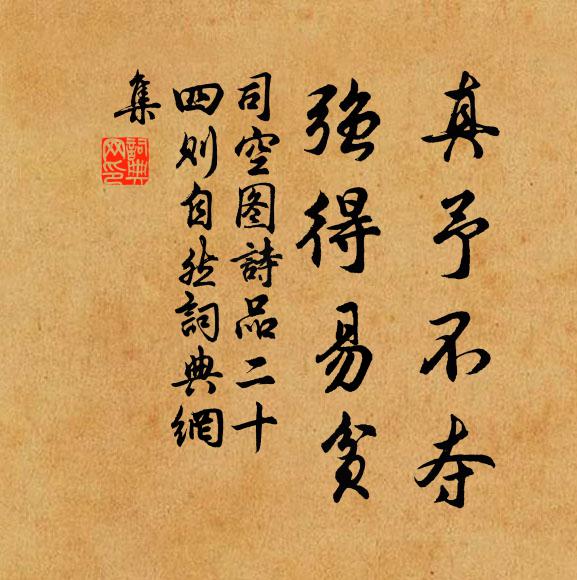 真予不夺
強得易貧
司空图詩品二十
四则自然詞典網
集
詞典
网印